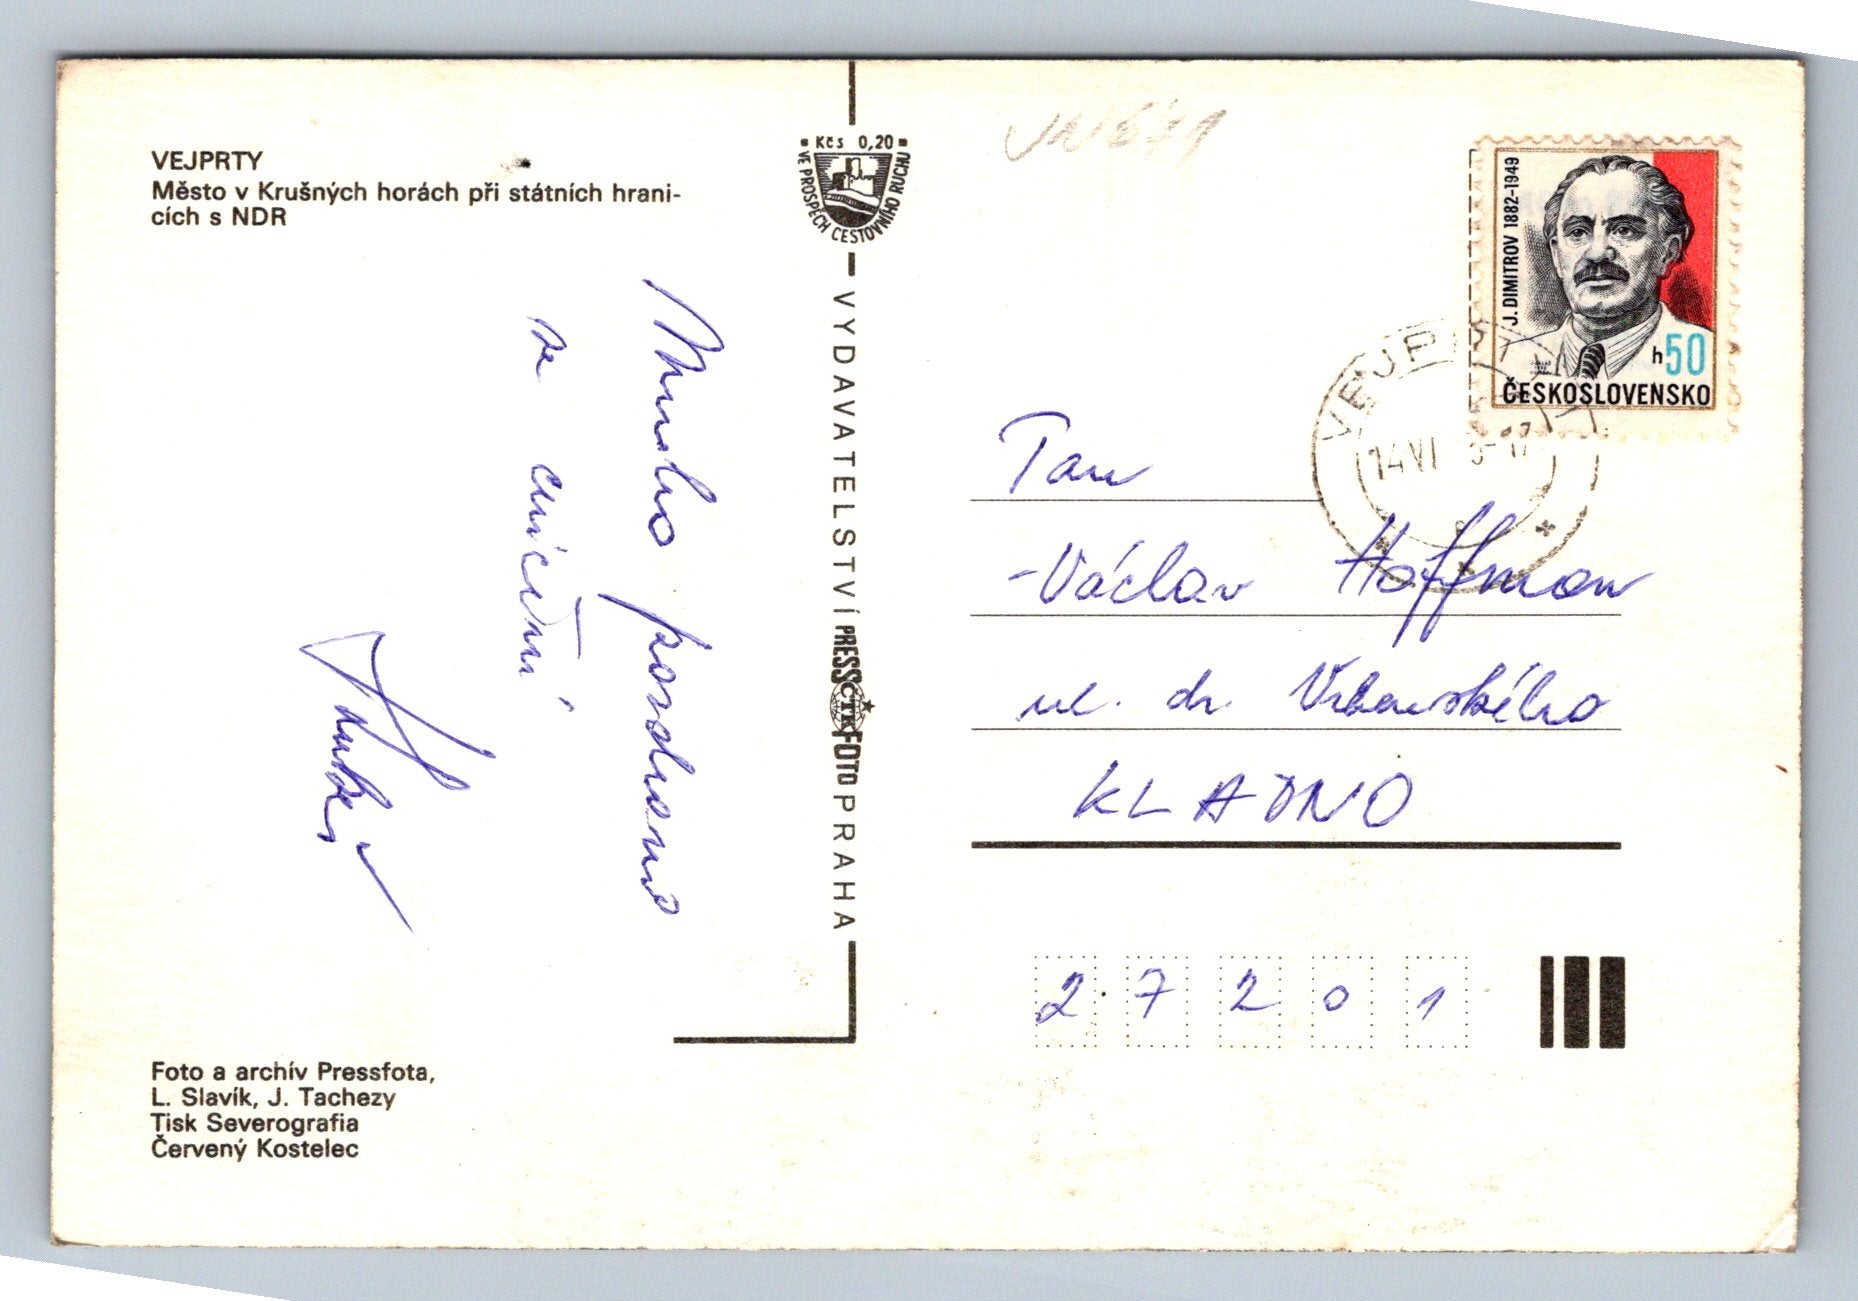 VEJPRTY
Město v Krušných horách při státních hrani-
cích s NDR
Kčs 0,20
VE PROSPĚCH CESTOVNÍHO RUCHU
VYDAVATELSTVÍ PRESSFOTO PRAHA
ČTK
Mnoho pozdravů
ze cvičení
J. DIMITROV 1882-1949
h50
ČESKOSLOVENSKO
VEJPRTY
14 VI
Pan
Václav Hoffman
ul. dr. Vrbenského
KLADNO
2 7 2 0 1
Foto a archív Pressfota,
L. Slavík, J. Tachezy
Tisk Severografia
Červený Kostelec